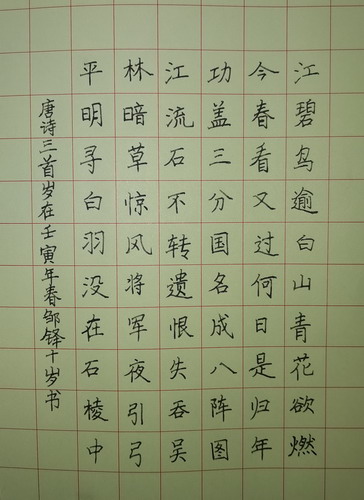 江碧鸟逾白山青花欲燃
今春看又过何日是归年
功盖三分国名成八阵图
江流石不转遗恨失吞吴
林暗草惊风将军夜引弓
平明寻白羽没在石棱中
唐诗三首岁在壬寅年春邹铎十岁书